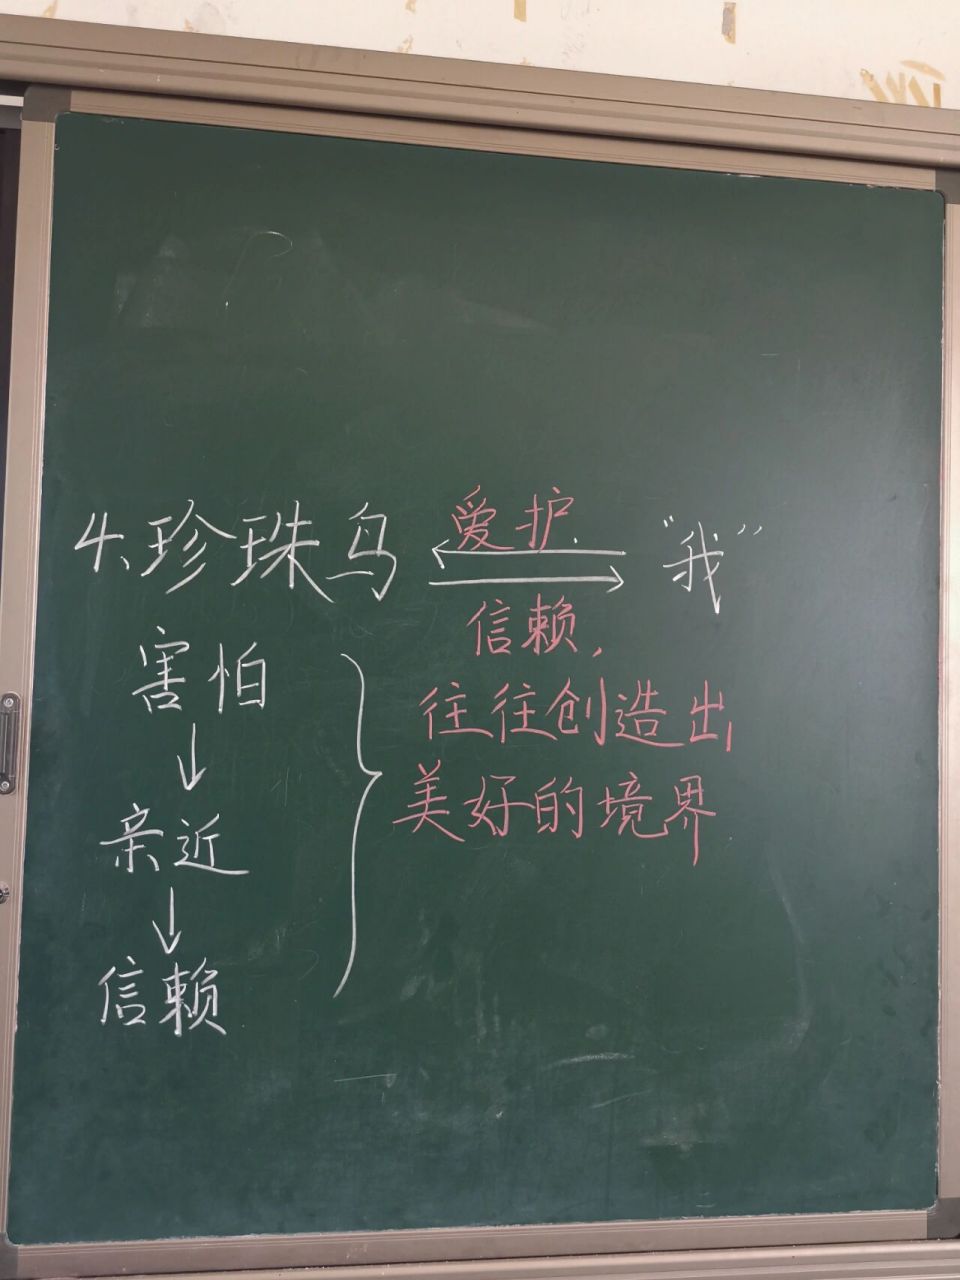 4、珍珠鸟 爱护 “我”
信赖，
害怕
往往创造出
美好的境界
亲近
信赖